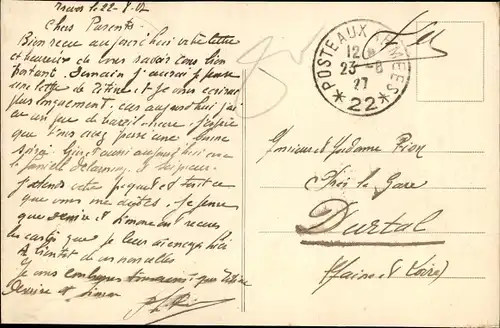 Treves le 22-8-27
Chers Parents
Bien reçu aujourd'hui votre lettre
et heureux de vous savoir tous bien
portant. Demain j'aurai je pense
une lettre de Titine et je vous écrirai
plus longuement, car aujourd'hui j'ai
eu un peu de travail
que vous avez passé une bonne
aujourd'hui avec
la famille Delaunay et
J'attends votre paquet et tout ce
que vous me dites. Je pense
que Denise et Simone ont reçues
les cartes que je leur ai envoyé
A bientôt de vos nouvelles
Je vous embrasse que Titine
Denise et Simone
POSTE AUX ARMEES
12
23-8
27
★ 22 ★
Monsieur et Madame Pion
Près la Gare
Durtal
(Maine & Loire)